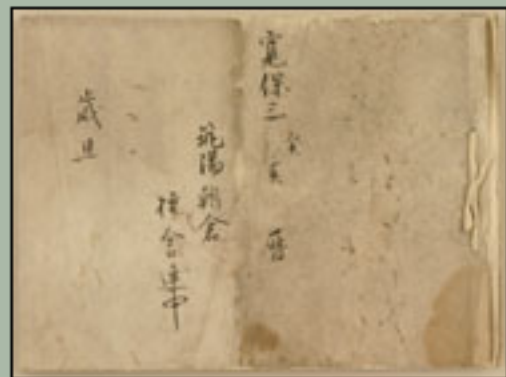 寛保三癸亥暦
筑陽朝倉
會連中
歳旦